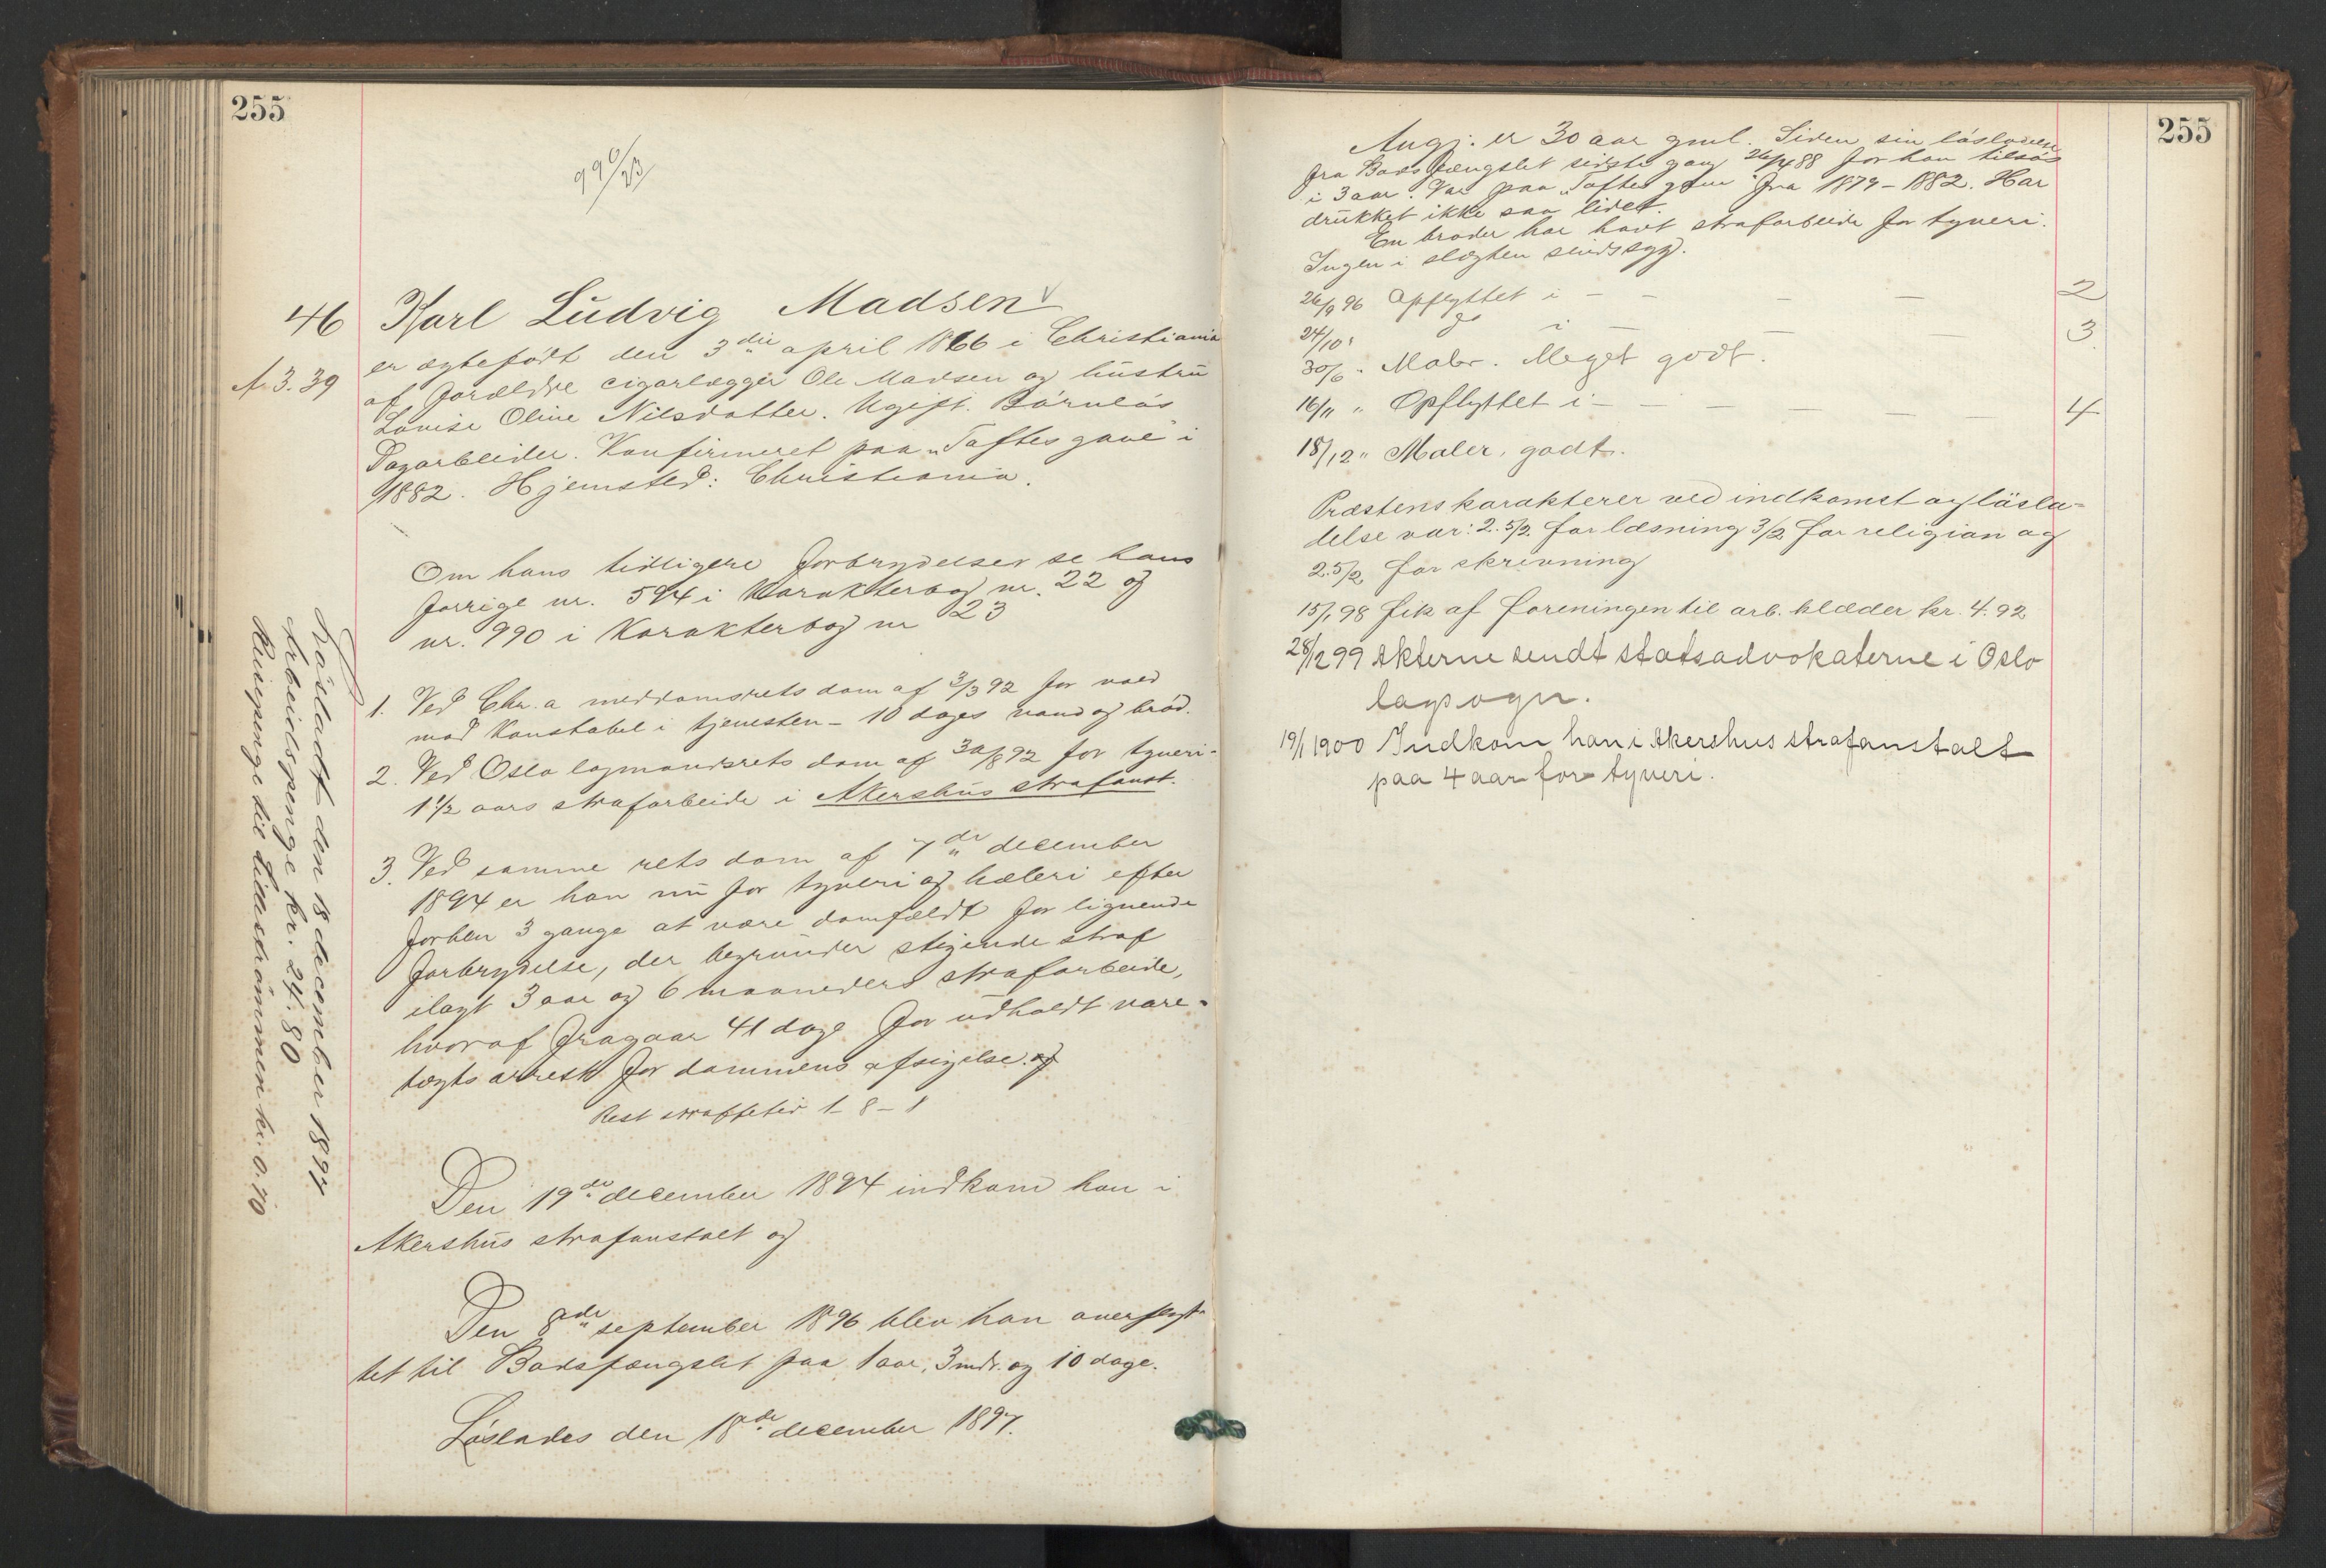 255
990/23
46 Karl Ludvig Madsen
A. 3. 39
er ægtefödt den 3die april 1866 i Christiania
af forældre cigarlægger Ole Madsen og hustru
Lovise Oline Nilsdatter. Ugift. Barnlös
Dagarbeider. Konfirmeret paa „Toftes gave" i
1882. Hjemsted: Christiania.
Om hans tidligere forbrydelser se hans
forrige nr. 594 i Karakterbog nr. 22 og
nr. 990 i Karakterbog nr 23
1. Ved Chr.a meddomsrets dom af 3/3 92 for vold
mod Konstabel i tjenesten - 10 dages vand og bröd.
2. Ved Oslo lagmandsrets dom af 30/8 92 for tyveri-
1 1/2 aars strafarbeide i Akershus strafanst.
3. Ved samme rets dom af 7de december
1894 er han nu for tyveri og hæleri efter
forhen 3 gange at være domfældt for lignende
forbrydelse, der begrunder stigende straf
ilagt 3 aar og 6 maaneders strafarbeide,
hvoraf fragaar 41 dage for udholdt vare-
tægtsarrest för dommens afsigelse. og
Rest straffetid 1 - 8 - 1
Den 19de december 1894 indkom han i
Akershus strafanstalt og
Den 8de september 1896 blev han overflyt-
tet til Bodsfængslet paa 1 aar, 3 mdr. og 10 dage.
Löslades den 18de december 1897.
Lösladt den 18 december 1897
Arbeidspenge kr. 24.80
Reisepenge til Lilleströmmen kr. 0.70
255
Angj. er 30 aar gml. Siden sin lösladelse
fra Bodsfængslet sidste gang 26/4 88 for han tilsös
i 3 aar. Var paa „Toftes gave" fra 1879-1882. Har
drukket ikke saa lidet.
En broder har havt strafarbeide for tyveri.
Ingen i slægten sindssyg.
26/9 96 Opflyttet i - - - - 2
24/10 " do i - - - 3
30/10 " Maler. Meget godt.
16/11 " Opflyttet i - - - - - - 4
18/12 " Maler, godt.
Præstens karakterer ved indkomst og lösla-
delse var: 2.5/2. for læsning 3/2 for religion og
2.5/2 for skrivning
15/1 98 fik af foreningen til arb. klæder kr. 4.92
28/12 99 Akterne sendt statsadvokaterne i Oslo
lagsogn.
19/1 1900 Indkom han i Akershus strafanstalt
paa 4 aar for tyveri.